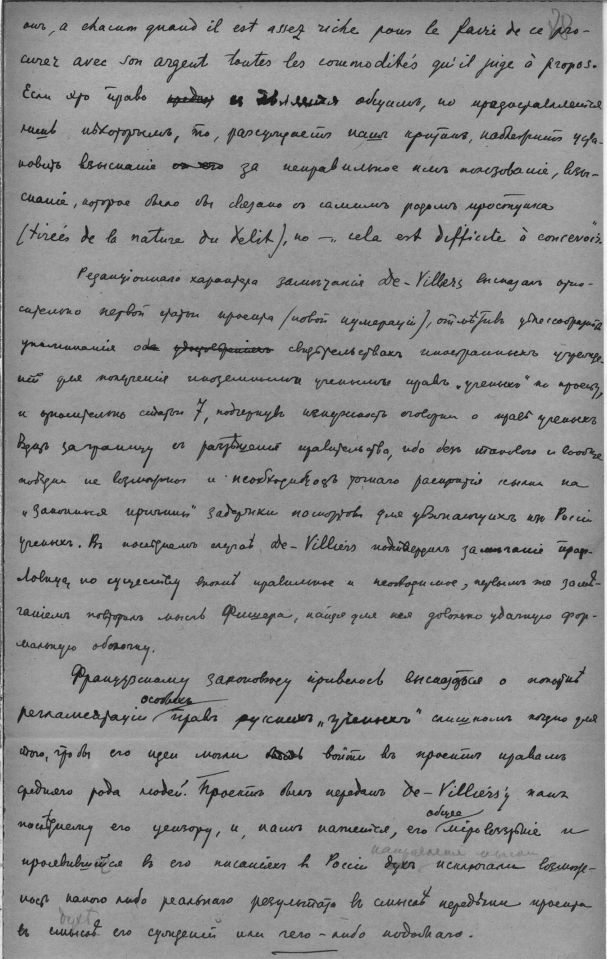 28
out, a chacun quand il est assez riche pour le faire de ce pro-
curer avec son argent toutes les commodités qu'il juge à propos.
Если это право является общим, но предоставляется
лишь некоторым, то, рассуждает наш критик, надлежит уста-
новить взыскание за неправильное им пользование, взы-
скание, которое было бы связано с самим родом проступка
(tirées de la nature du délit), но — cela est difficile à concevoir.
Редакционнаго характера замечания de-Villiers высказал отно-
сительно первой статьи проекта (новой нумерации), отметив
упоминания о свидетельствах иностранных учрежде-
ний для получения иноземными учеными прав „ученых" по проекту,
и относительно статьи 7, подчеркнув ненужность оговорки о праве ученых
ездить заграницу с разрешения правительства, ибо без такового и вообще
поездки не возможны и необходимость точнаго раскрытия ссылки на
„законныя причины" задержки паспортов для уезжающих из России
ученых. В последнем случае de-Villiers подтвердил замечание проф.
Ловица, по существу вполне правильное и необходимое, первым же заме-
чанием повторил мысль Фишера, найдя для нея довольно удачную фор-
мальную оболочку.
Французскому законоведу привелось высказаться о попытке
регламентации особых прав русских „ученых" слишком поздно для
того, чтобы его идеи могли войти в проект правам
средняго рода людей. Проект был передан de-Villiers'у как
последнему его цензору, и, нам кажется, его общее міровоззрение и
проявившийся в его писаниях в России дух исключали возмож-
ность какого либо реальнаго результата в смысле переделки проекта
в смысле его суждений или чего-либо подобнаго.